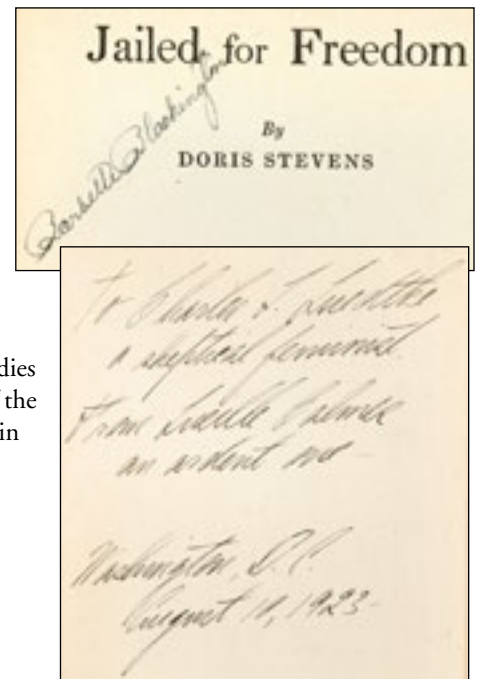 Jailed for Freedom
By
DORIS STEVENS
Blackington
dies
the
in
To Charles F.
a skeptical feminist
From Lucille
an ardent one
Washington, D.C.
August 10, 1923